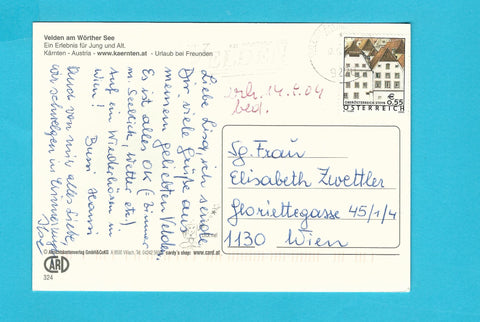 Velden am Wörther See
Ein Erlebnis für Jung und Alt.
Kärnten - Austria - www.kaernten.at - Urlaub bei Freunden
VELDEN
€ 0,55
OBERÖSTERREICH STEYR
ÖSTERREICH
erh. 14.6.04
bed.
Liebe Lisa, ich sende
Dir viele Grüße aus
meinem geliebten Velden.
Es ist alles OK (= Zimmer
m. Seeblick, Wetter etc.)
Auf ein Wiederhören in
Wien! Bussi Hansi
Auch von mir alles Liebe,
wir schwelgen in Erinnerungen
Ilse
Sg. Frau
Elisabeth Zwettler
Gloriettegasse 45/1/4
1130 Wien
A-9500 Villach, Tel. 04242
cardy's shop: www.card.at
ARD
324